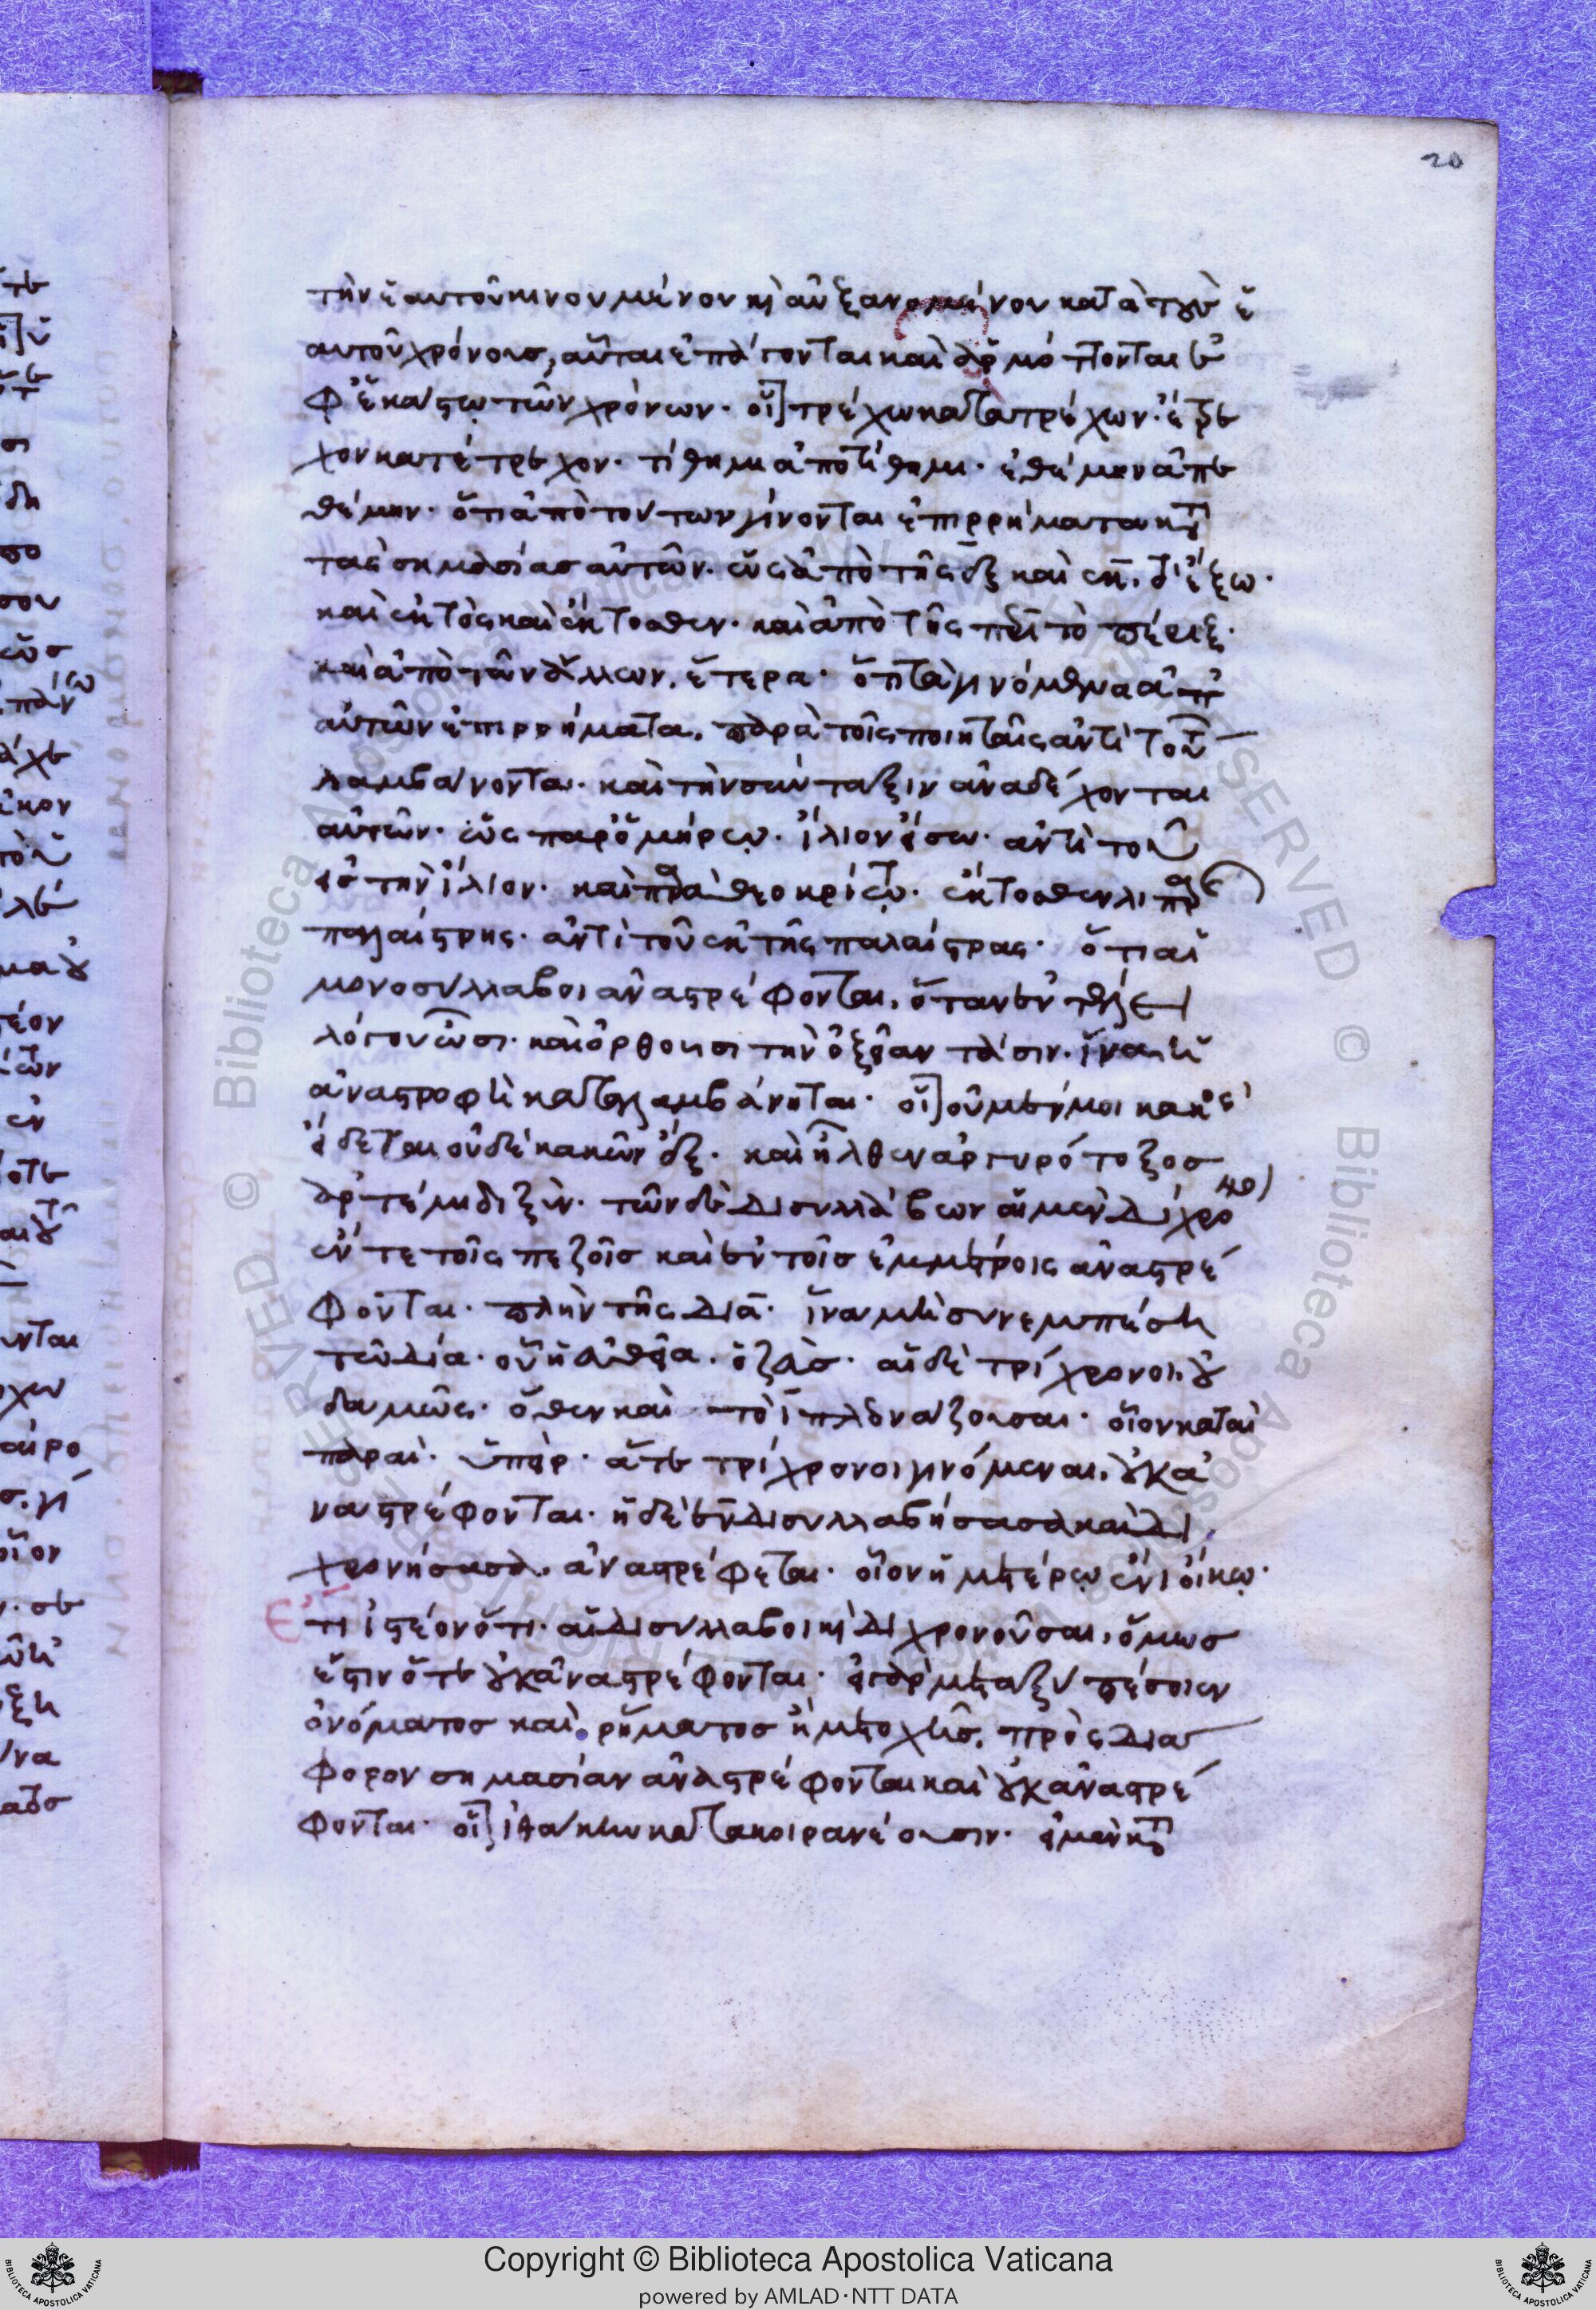 20
τὴν ἑαυτοῦ κινουμένου κὶ αὐξανομένου κατὰ τοὺς ἑ
αυτοῦ χρόνους, αὗται ἐπάγονται καὶ ἁρμόττονται ἐ
φ' ἑκάστω τῶν χρόνων· οἷον τρέχω κατατρέχων· ἔτρε
χον κατέτρεχον· τίθημι ἀποτίθημι· ἐθέμην ἀπε
θέμην· ὅτι ἀπὸ τούτων γίνονται ἐπιρρήματα κατὰ
τὰς σημασίας αὐτῶν· ὡς ἀπὸ τῆς ἐξ καὶ ἐκ, τὸ ἔξω·
καὶ ἐκτὸς καὶ ἔκτοθεν· καὶ ἀπὸ τῆς περὶ τὸ πέριξ·
καὶ ἀπὸ τῶν ἄλλων, ἕτερα· ὅτι τὰ γινόμενα ἀπ'
αὐτῶν ἐπιρρήματα, παρὰ τοῖς ποιηταῖς ἀντὶ τούτων
λαμβάνονται· καὶ τὴν σύνταξιν ἀναδέχονται
αὐτῶν· ὡς παρ' ὁμήρω· ἴλιον εἴσω· ἀντὶ τοῦ
εἰς τὴν ἴλιον· καὶ παρὰ θεοκρίτω· ἔκτοθεν λιπαρᾶς
παλαίστρης· ἀντὶ τοῦ ἐκ τῆς παλαίστρας· ὅτι αἱ
μονοσύλλαβοι ἀναστρέφονται, ὅταν ἐν τέλει
λόγου ὦσι· καὶ ὀρθοῦσι τὴν ὀξεῖαν τάσιν· ἵνα ἡ
ἀναστροφὴ καταλαμβάνηται· οἷον οὐ μέν μοι κακὸς
εἴδεται οὐδὲ κακῶν ἔξ· καὶ ἦλθεν ἀργυρότοξος
ἀρτέμιδι ξύν· τῶν δὲ δισυλλάβων αἱ μὲν δίχρο
νοι
ἔν τε τοῖς πεζοῖς καὶ ἐν τοῖς ἐμμέτροις ἀναστρέ
φονται· πλὴν τῆς διά· ἵνα μὴ συνεμπέση
τῶ δία· οὗ ἡ εὐθεῖα, ὁ ζάς· αἱ δὲ τρίχρονοι, οὐ
δαμῶς· ὅθεν καὶ τὸ ι πλεονάζουσαι· οἷον καταὶ
παραί· ὑπείρ· ἅτε τρίχρονοι γινόμεναι, οὐκ ἀ
ναστρέφονται· ἡ δὲ ἐν δισυλλαβήσασα καὶ δι
χρονήσασα, ἀναστρέφεται· οἷον ἡμετέρω ἐνὶ οἴκω·
Ἔτι ἰστέον ὅτι αἱ δισύλλαβοι κὶ διχρονοῦσαι, ὅμως
ἔστιν ὅτε οὐκ ἀναστρέφονται· εἰ γὰρ μεταξὺ πέσοιεν
ὀνόματος καὶ ῥήματος ἢ μετοχῆς, πρὸς διά
φορον σημασίαν ἀναστρέφονται καὶ οὐκ ἀναστρέ
φονται· οἷον ἰθάκην κατακοιρανέουσιν· εἰ μὲν κατὰ
Copyright © Biblioteca Apostolica Vaticana
powered by AMLAD·NTT DATA